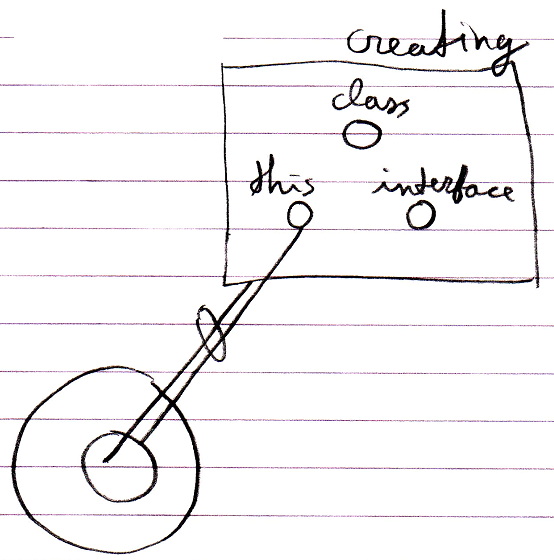 creating
class
this interface